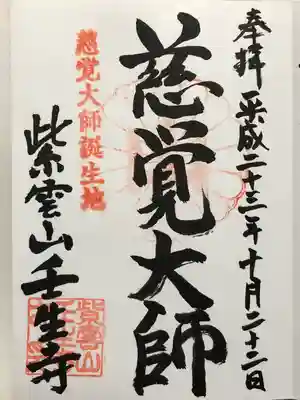 奉拝 平成二十三年十月二十二日
慈覚大師
慈覚大師誕生地
紫雲山壬生寺